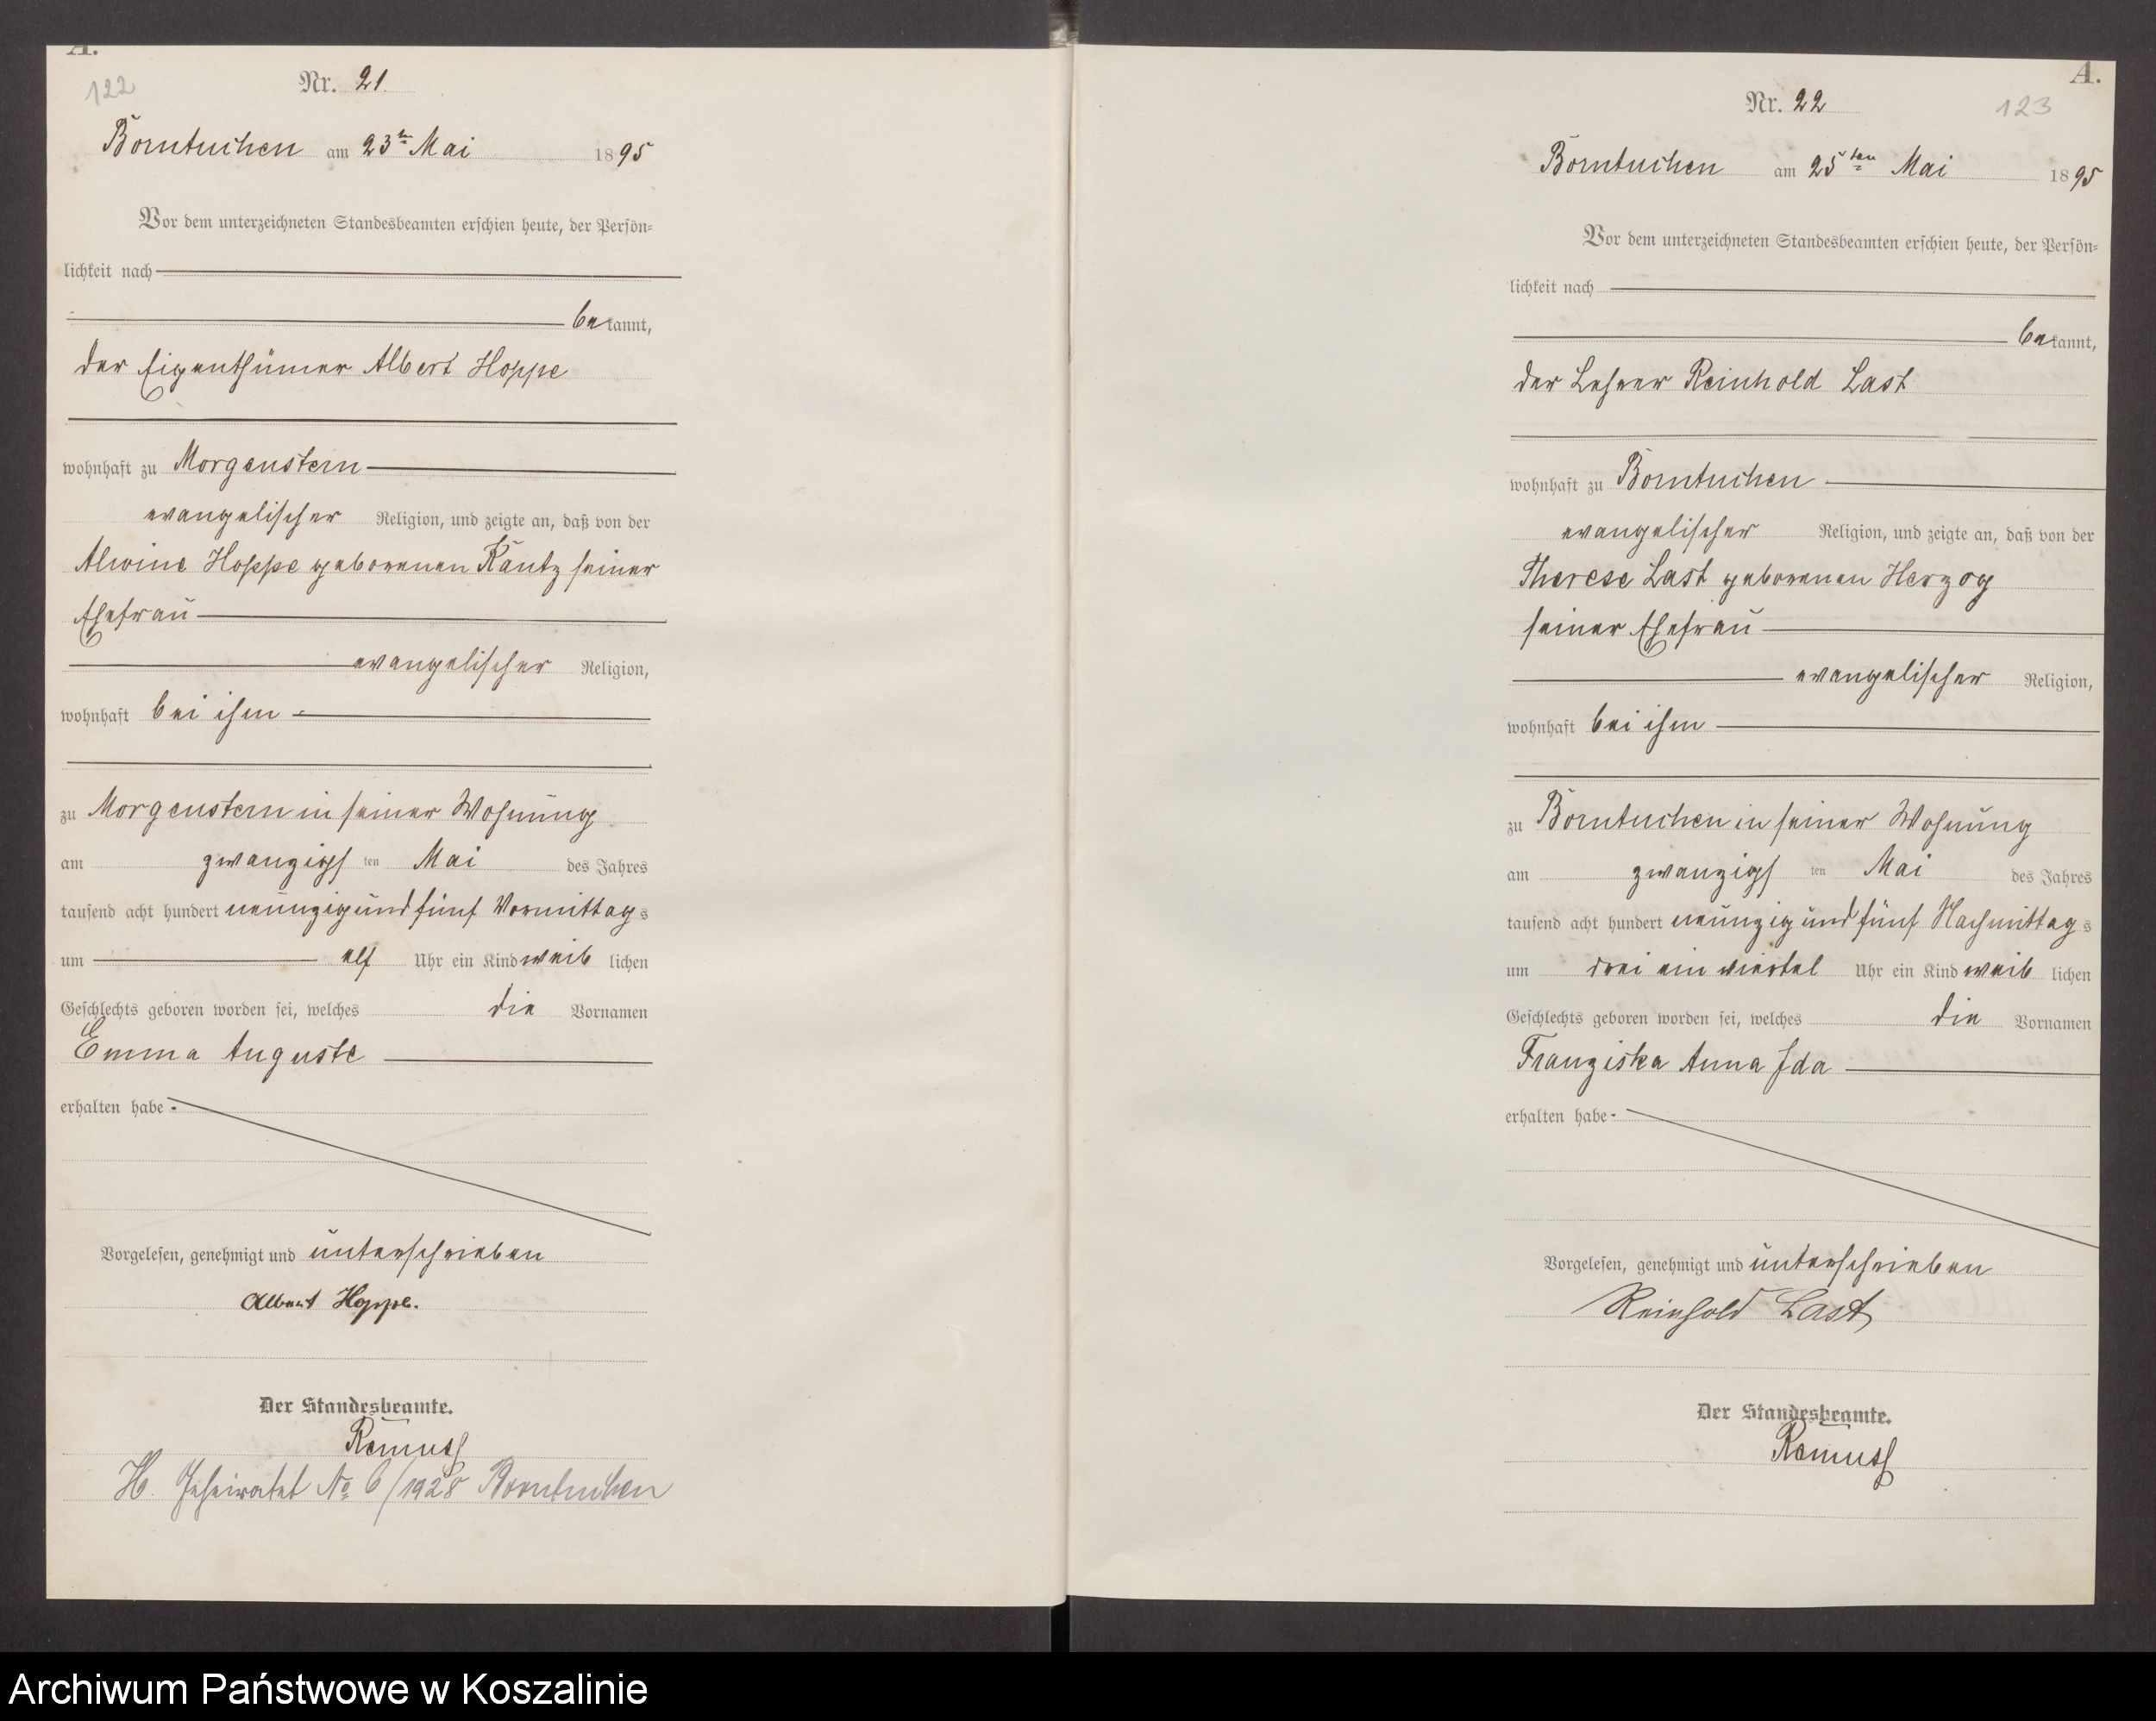 A.
122
Nr. 21.
Borntuchen am 23ten Mai 1895
Vor dem unterzeichneten Standesbeamten erschien heute, der Persön-
lichkeit nach
bekannt,
der Eigenthümer Albert Hoppe
wohnhaft zu Morgenstern
evangelischer Religion, und zeigte an, daß von der
Alwine Hoppe geborenen Rautz seiner
Ehefrau
evangelischer Religion,
wohnhaft bei ihm
zu Morgenstern in seiner Wohnung
am zwanzigsten Mai des Jahres
tausend acht hundert neunzig und fünf Vormittags
um elf Uhr ein Kind weiblichen
Geschlechts geboren worden sei, welches die Vornamen
Emma Auguste
erhalten habe.
Vorgelesen, genehmigt und unterschrieben
Albert Hoppe.
Der Standesbeamte.
Remus
H. Geheiratet No 6/1928 Borntuchen
A.
123
Nr. 22
Borntuchen am 25ten Mai 1895
Vor dem unterzeichneten Standesbeamten erschien heute, der Persön-
lichkeit nach
bekannt,
der Lehrer Reinhold Last
wohnhaft zu Borntuchen
evangelischer Religion, und zeigte an, daß von der
Therese Last geborenen Herzog
seiner Ehefrau
evangelischer Religion,
wohnhaft bei ihm
zu Borntuchen in seiner Wohnung
am zwanzigsten Mai des Jahres
tausend acht hundert neunzig und fünf Nachmittags
um drei ein viertel Uhr ein Kind weiblichen
Geschlechts geboren worden sei, welches die Vornamen
Franziska Anna Ida
erhalten habe.
Vorgelesen, genehmigt und unterschrieben
Reinhold Last
Der Standesbeamte.
Remus
Archiwum Państwowe w Koszalinie